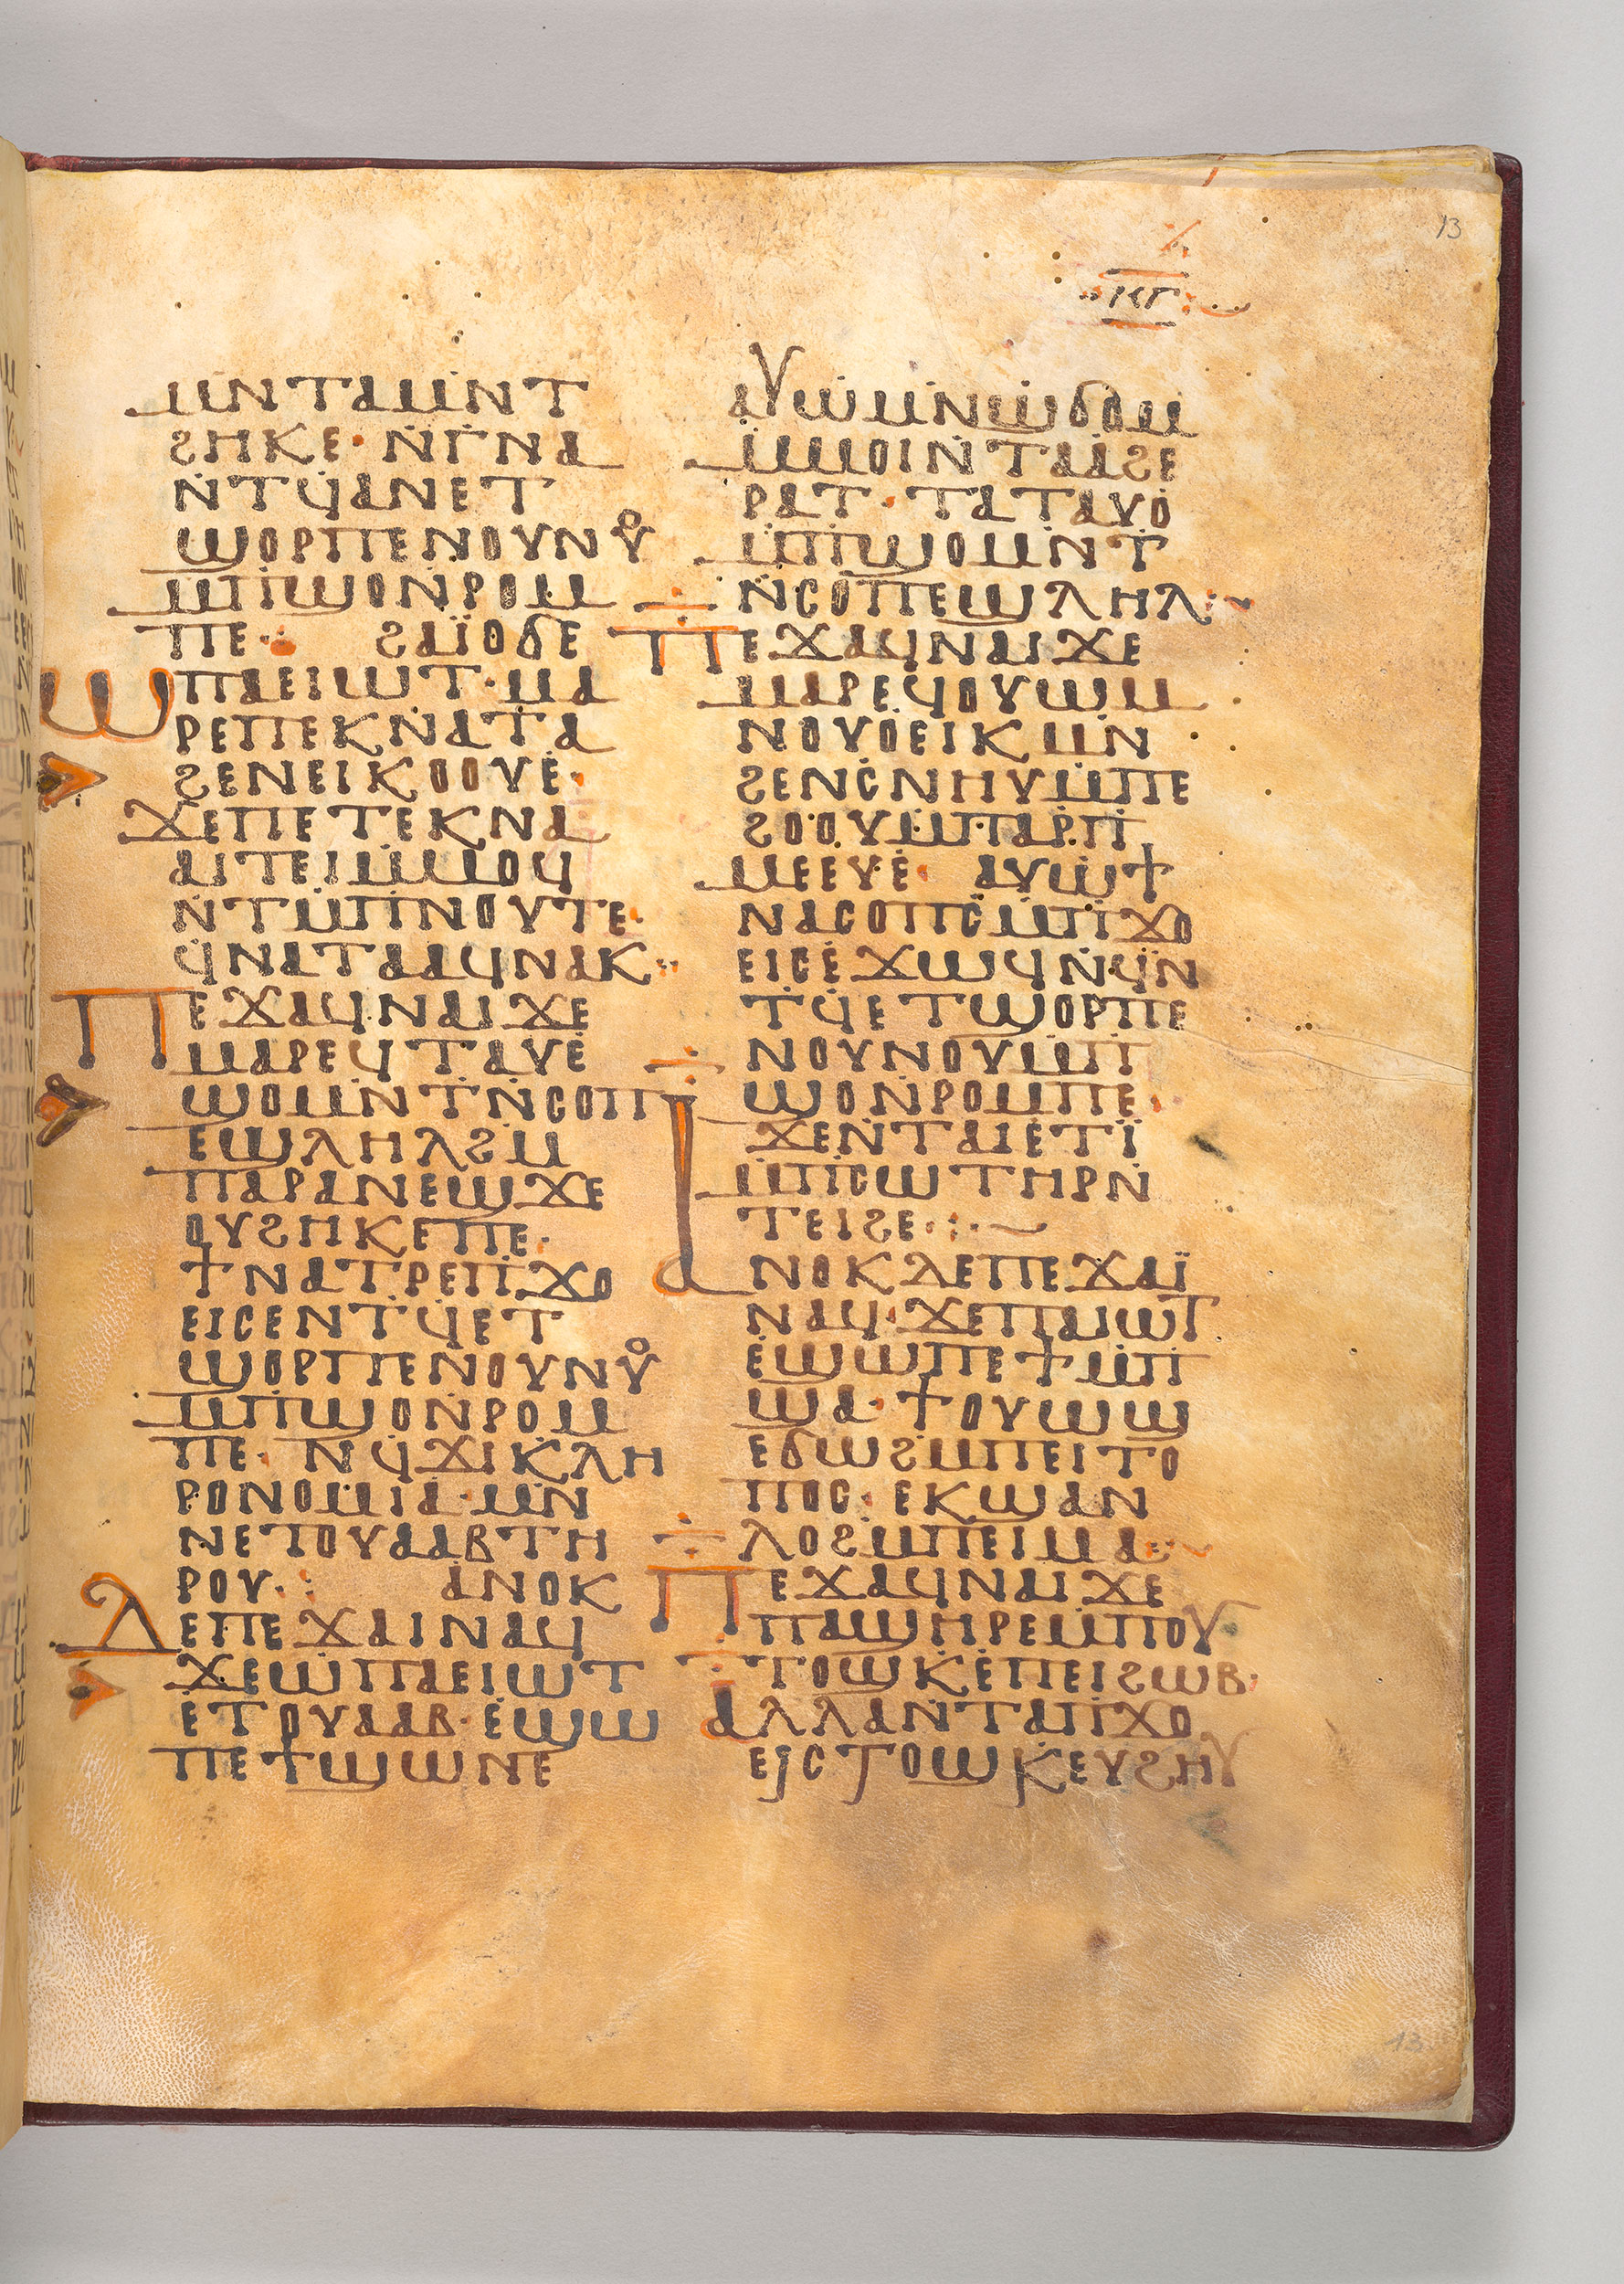 13
ⲕⲅ
ⲙⲛⲧⲁⲙⲛ̇ⲧ
ϩⲏⲕⲉ· ⲛ̇ⲅ̇ⲛⲁ
ⲛ̇ⲧϥ̇ⲁⲛⲉⲧ
ϣⲟⲣⲡⲉⲛⲟⲩⲛⲟⲩ
ⲙ̇ⲡⲓϣⲟⲛ̇ⲣⲟⲙ
ⲡⲉ· ϩⲁⲓ̈ⲟϭⲉ
ⲱⲡⲁⲉⲓⲱⲧ· ⲙⲁ
ⲣⲉⲡⲉⲕⲛ̇ⲁⲧⲁ
ϩⲉⲛⲉⲓⲕⲟⲟⲩⲉ̇·
ϫⲉⲡⲉⲧⲉⲕⲛⲁ
ⲁⲓⲧⲉⲓⲙ̇ⲙⲟϥ
ⲛ̇ⲧⲙ̇ⲡ̇ⲛⲟⲩⲧⲉ·
ϥ̇ⲛⲁⲧⲁⲁϥⲛⲁⲕ:
ⲡⲉϫⲁϥⲛⲁⲓϫⲉ
ⲙⲁⲣⲉϥⲧⲁⲩⲉ̇
ϣⲟⲙⲛ̇ⲧⲛ̇ⲥⲟⲡ
ⲉϣⲗⲏⲗϩⲙ̇
ⲡⲁⲣⲁⲛⲉϣϫⲉ
ⲟⲩϩⲏⲕⲉⲡⲉ·
ϯⲛⲁⲧⲣⲉⲡ̇ϫⲟ
ⲉⲓⲥⲉⲛⲧ̇ϥ̇ⲉⲧ
ϣⲟⲣⲡⲉⲛ̇ⲟⲩⲛⲟⲩ
ⲙ̇ⲡⲓϣⲟⲛ̇ⲣⲟⲙ
ⲡⲉ· ⲛ̇ϥ̇ϫⲓⲕ̇ⲗⲏ
ⲣⲟⲛⲟⲙⲓⲁ· ⲙⲛ̇
ⲛⲉⲧⲟⲩⲁⲁⲃⲧⲏ
ⲣⲟⲩ·: ⲁⲛⲟⲕ
ⲇⲉⲡⲉϫⲁⲓⲛⲁϥ
ϫⲉⲱ̇ⲡⲁⲉⲓⲱⲧ
ⲉ̇ⲧⲟⲩⲁⲁⲃ· ⲉ̇ϣⲱ
ⲡⲉϯϣⲱⲛⲉ
ⲁⲩⲱ̇ⲙ̇ⲛ̇ϣ̇ϭⲟⲙ
ⲙ̇ⲙⲟⲓⲛ̇ⲧⲁⲁ̇ϩⲉ
ⲣⲁⲧ· ⲧⲁⲧⲁⲩⲟ̇
ⲙ̇ⲡⲓϣⲟⲙⲛ̇ⲧ
ⲛ̇ⲥⲟⲡⲉϣⲗⲏⲗ:
ⲡⲉϫⲁϥⲛⲁⲓϫⲉ
ⲙⲁⲣⲉϥⲟⲩⲱⲙ
ⲛⲟⲩⲟ̇ⲉⲓⲕⲙⲛ
ϩⲉⲛⲥ̇ⲛⲏⲩⲙ̇ⲡⲉ
ϩⲟⲟⲩⲙ̇ⲡⲁⲣ̇ⲡ̇
ⲙⲉⲉⲩⲉ̇· ⲁⲩⲱ̇ϯ
ⲛⲁⲥⲟⲡⲥ̇ⲙ̇ⲡ̇ϫⲟ
ⲉⲓⲥⲉ̇ϫⲱϥⲛ̇ϥ̇ⲛ
ⲧ̇ϥ̇ⲉⲧϣⲟⲣⲡⲉ
ⲛⲟⲩⲛⲟⲩⲙ̇ⲡ̇
ϣⲟⲛ̇ⲣⲟⲙⲡⲉ·
ϫⲉⲛ̇ⲧⲁⲓⲉ̇ⲧⲓ̈
ⲙ̇ⲡ̇ⲥⲱⲧⲏⲣⲛ̇
ⲧⲉⲓϩⲉ·:·
ⲁⲛⲟⲕⲇⲉⲡⲉϫⲁⲓ̈
ⲛⲁϥ· ϫⲉⲡⲁⲓⲱⲧ
ⲉ̇ϣⲱⲡⲉϯⲙ̇ⲡ̇
ϣⲁ· ϯⲟⲩⲱϣ
ⲉϭⲱϩⲙⲡⲉⲓⲧⲟ
ⲡⲟⲥ· ⲉⲕϣⲁⲛ
ⲗⲟϩⲙ̇ⲡⲉⲓⲙⲁ:
ⲡⲉϫⲁϥⲛⲁⲓϫⲉ
ⲡⲁϣⲏⲣⲉⲙ̇ⲡⲟⲩ
ⲧⲟϣⲕ̇ⲉ̇ⲡⲉⲓϩⲱⲃ·
ⲁⲗⲗⲁⲛ̇ⲧⲁⲡ̇ϫⲟ
ⲉⲓⲥⲧⲟϣⲕⲉⲩϩⲏⲩ
13